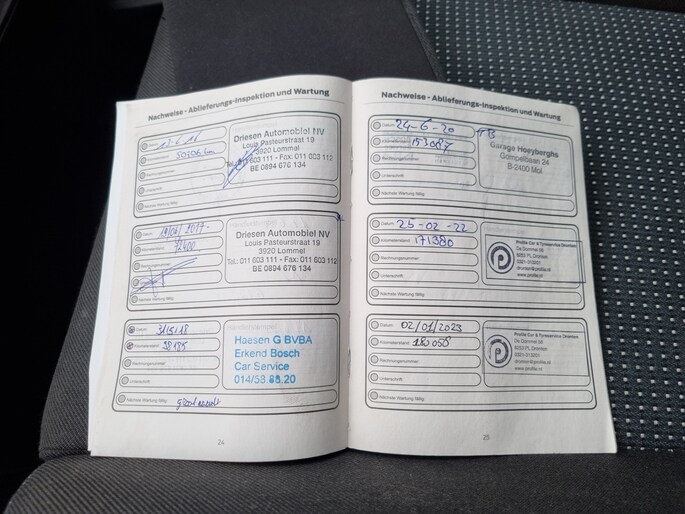 Nachweise - Ablieferungs-Inspektion und Wartung
Datum
Kilometerstand
Rechnungsnummer
Unterschrift
Nächste Wartung fällig:
Driesen Automobiel NV
Louis Pasteurstraat 19
3920 Lommel
Tel.: 011 603 111 - Fax: 011 603 112
BE 0894 676 134
Datum 19/06/2017
Kilometerstand 72400
Nächste Wartung fällig:
Driesen Automobiel NV
Louis Pasteurstraat 19
3920 Lommel
Tel.: 011 603 111 - Fax: 011 603 112
BE 0894 676 134
Datum 31/5/18
Kilometerstand
Rechnungsnummer
Unterschrift
Nächste Wartung fällig:
Haesen G BVBA
Erkend Bosch
Car Service
014/58.88.20
24
Nachweise - Ablieferungs-Inspektion und Wartung
Datum 24-6-20
Kilometerstand 153087
Rechnungsnummer
Unterschrift
Nächste Wartung fällig:
Garage Hoeyberghs
Gompelbaan 24
B-2400 Mol
Datum 25-02-22
Kilometerstand 171380
Rechnungsnummer
Unterschrift
Nächste Wartung fällig:
Profile Car & Tyreservice Dronten
De Dommel 56
8253 PL Dronten
www.profile.nl
Datum 02/01/2023
Kilometerstand 180058
Rechnungsnummer
Unterschrift
Nächste Wartung fällig:
Profile Car & Tyreservice Dronten
De Dommel 56
8253 PL Dronten
www.profile.nl
25